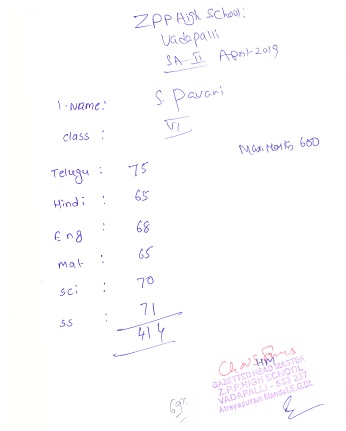 ZPP High School:
Vadapalli
SA-II April-2019
1. Name: S. Pavani
class : VI
Max Marks 600
Telugu : 75
Hindi : 65
Eng : 68
mat : 65
sci : 70
ss : 71
414
HM
GAZETTED HEAD MASTER
Z.P.P.HIGH SCHOOL
VADAPALLI - 533 237
Atreyapuram Mandal, E.G.Dt